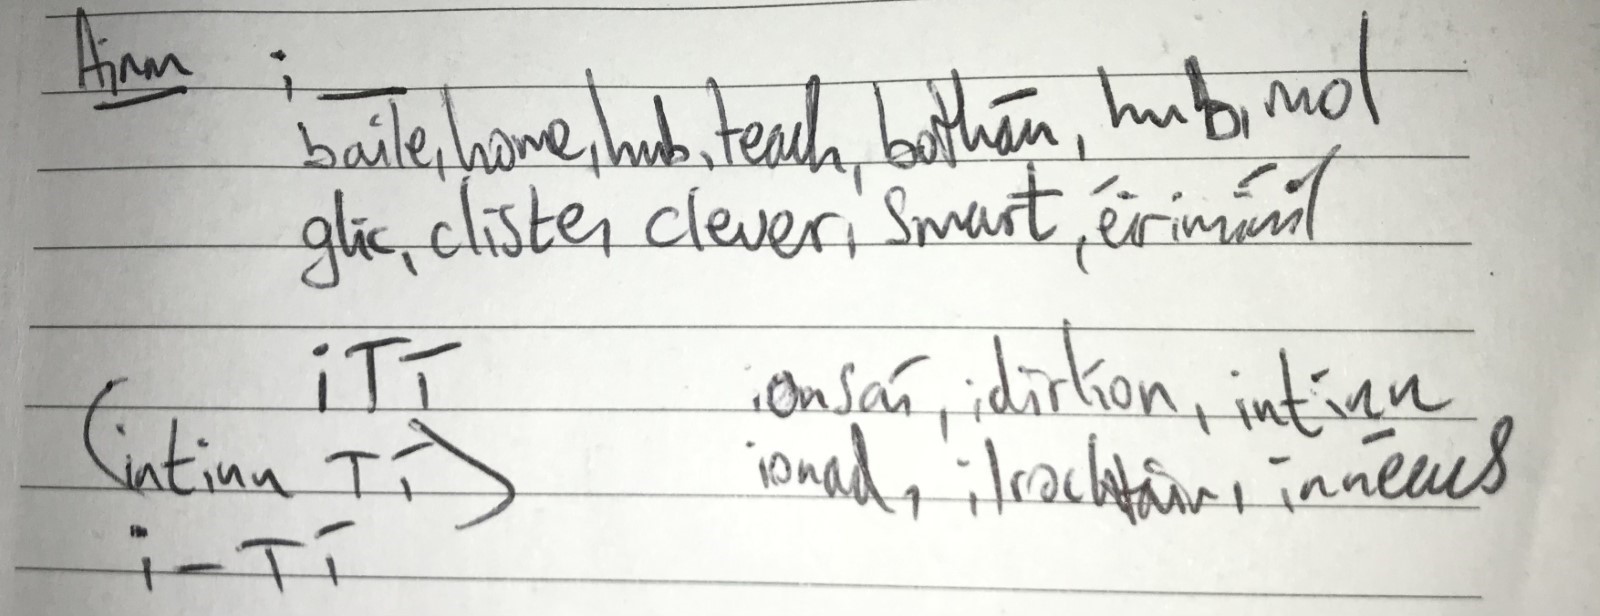 Ainm i —
baile, home, hub, teach, bothán, hub, mol
glic, cliste, clever, smart, éirimiúil
iTí
(intinn Tí)
i-Tí
ionsaí, idirlíon, intinn
ionad, ilrochtain, innéacs